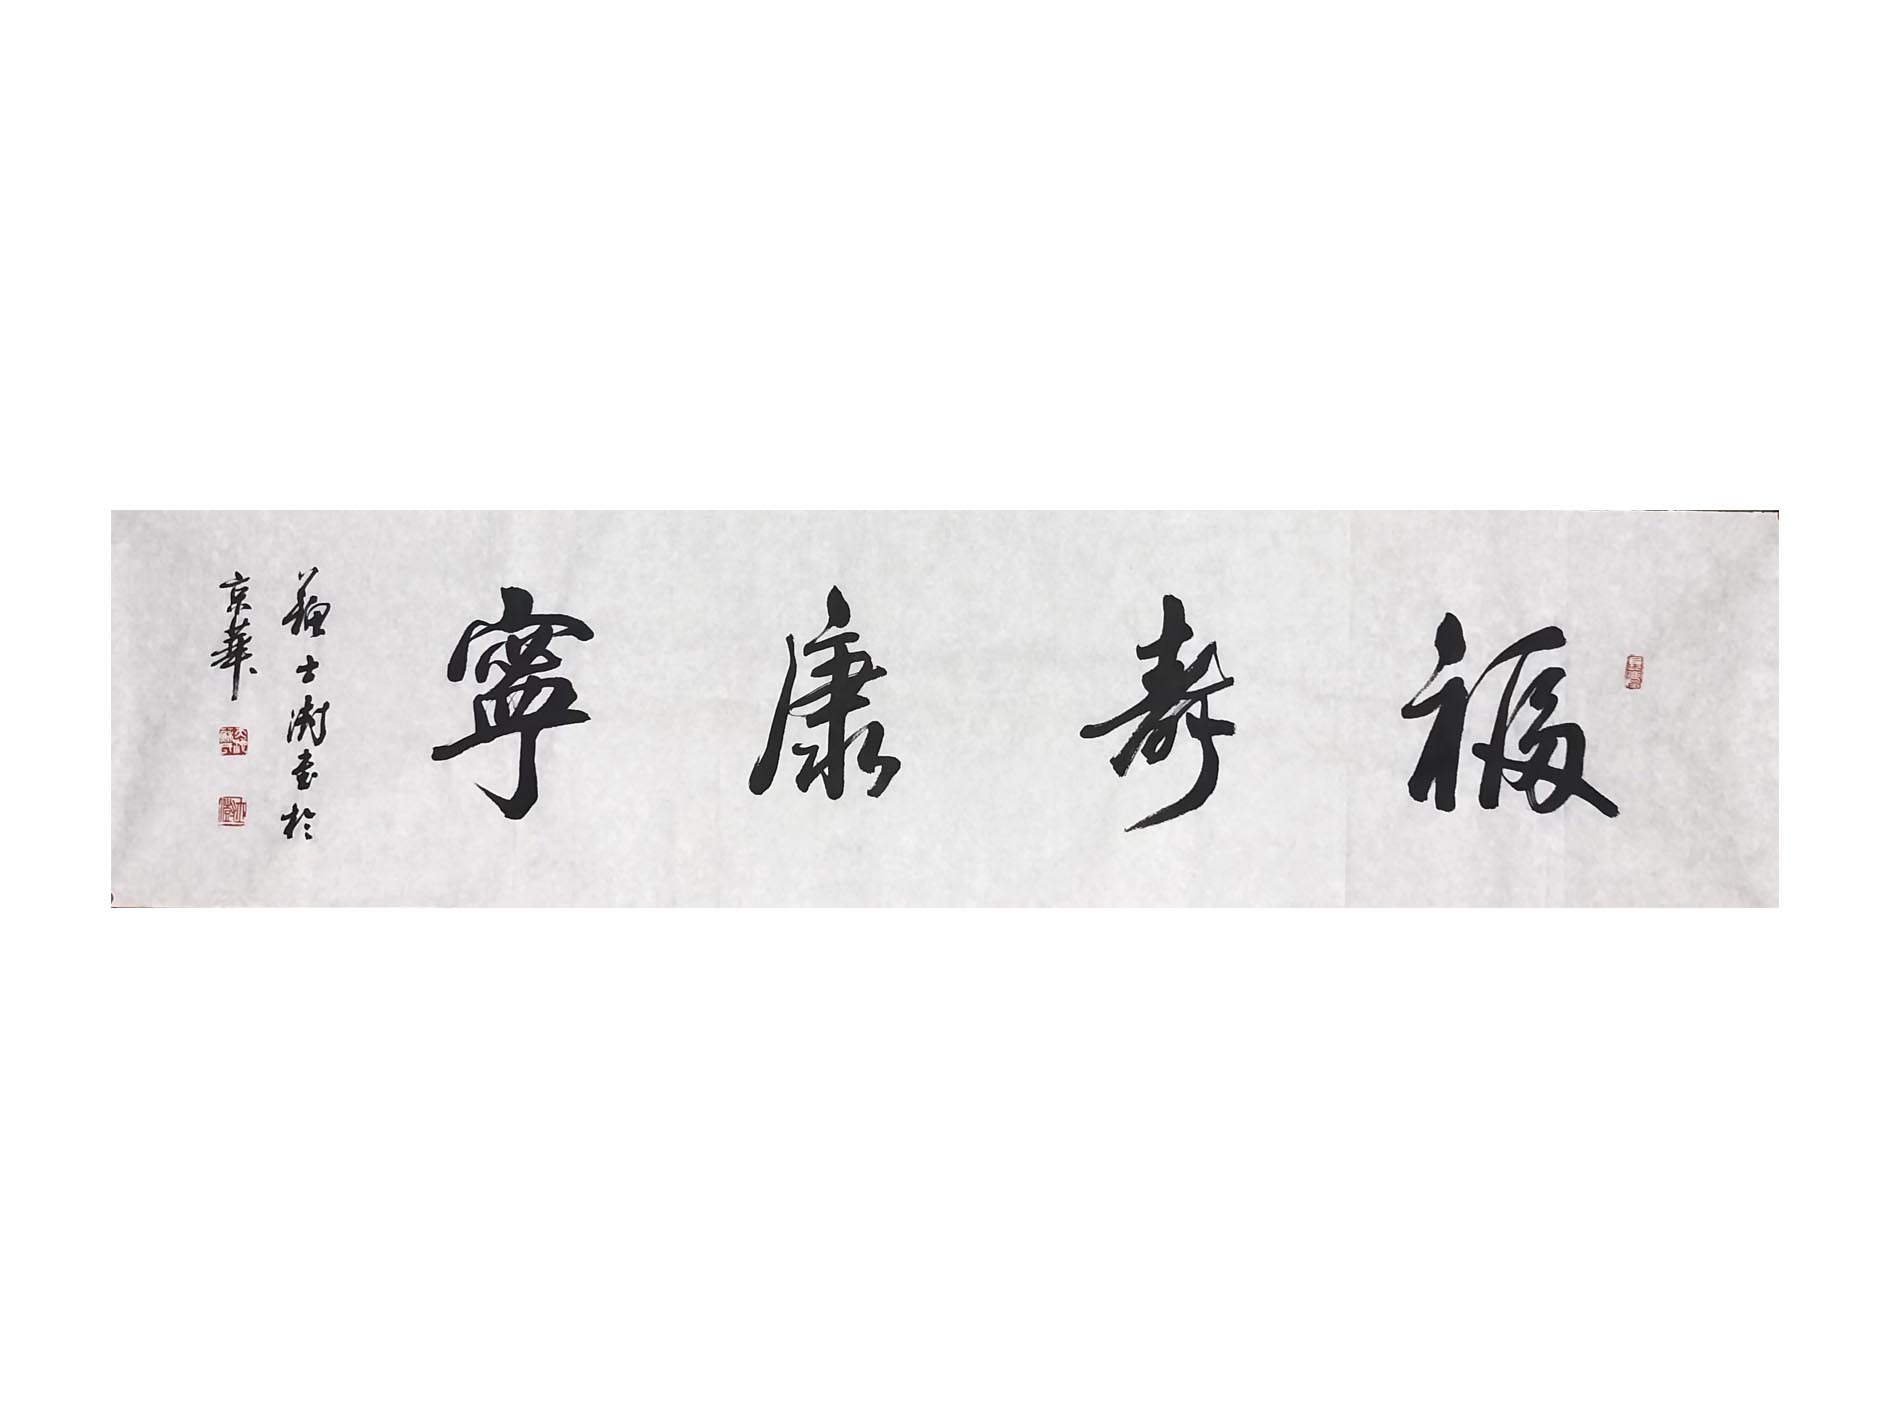 福壽康寧
蘇士澍書於
京華